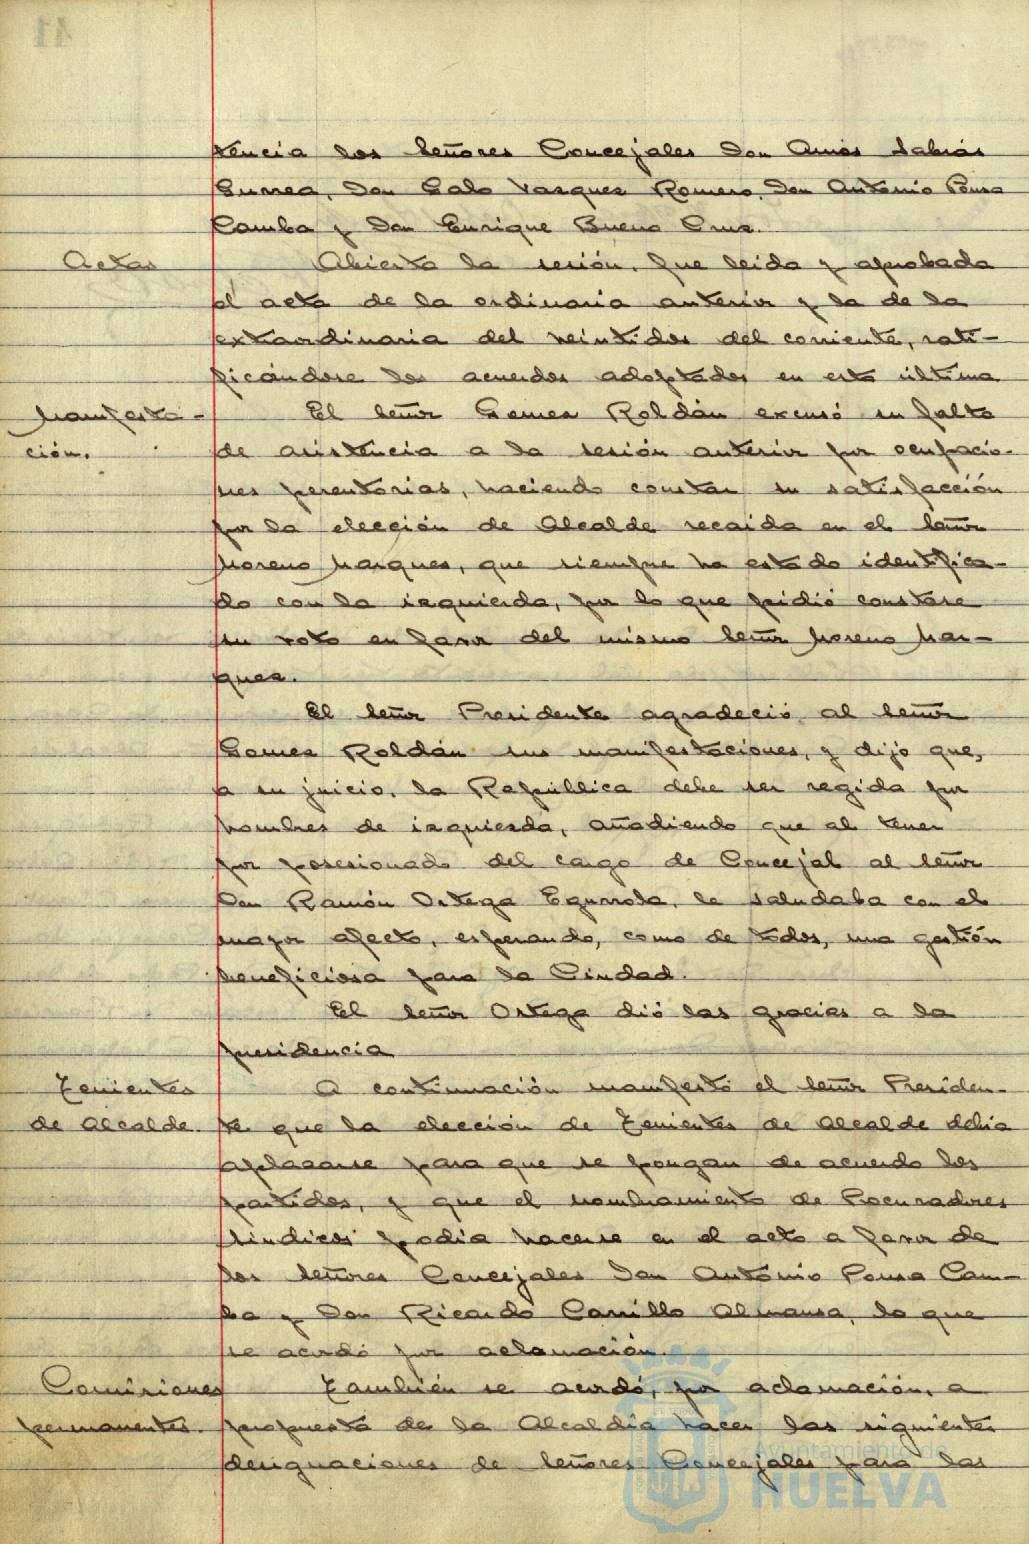 tencia los Señores Concejales Don Amós Sabrás
Gurrea, Don Galo Vazquez Romero, Don Antonio Pousa
Camba y Don Enrique Bueno Cruz.
Actas
Abierta la sesión, fue leida y aprobada
el acta de la ordinaria anterior y la de la
extraordinaria del veintidos del corriente, rati-
ficándose los acuerdos adoptados en esta última
Manifesta-
ción.
El Señor Gomez Roldán excusó su falta
de asistencia a la sesión anterior por ocupacio-
nes perentorias, haciendo constar su satisfacción
por la elección de Alcalde recaida en el Señor
Moreno Marquez, que siempre ha estado identifica-
do con la izquierda, por lo que pidió constase
su voto en favor del mismo Señor Moreno Mar-
quez.
El Señor Presidente agradeció al Señor
Gomez Roldán sus manifestaciones, y dijo que,
a su juicio, la República debe ser regida por
hombres de izquierda, añadiendo que al tener
por posesionado del cargo de Concejal al Señor
Don Ramón Ortega Egurrola, le saludaba con el
mayor afecto, esperando, como de todos, una gestión
beneficiosa para la Ciudad.
El Señor Ortega dió las gracias a la
presidencia
Tenientes
de Alcalde.
A continuación manifestó el Señor Presiden-
te que la elección de Tenientes de Alcalde debia
aplazarse para que se pongan de acuerdo los
partidos, y que el nombramiento de Procuradores
Sindicos podia hacerse en el acto a favor de
los Señores Concejales Don Antonio Pousa Cam-
ba y Don Ricardo Carrillo Almansa, lo que
se acordó por aclamación.
Comisiones
permanentes.
También se acordó, por aclamación, a
propuesta de la Alcaldia hacer las siguientes
designaciones de Señores Concejales para las
Ayuntamiento de
HUELVA